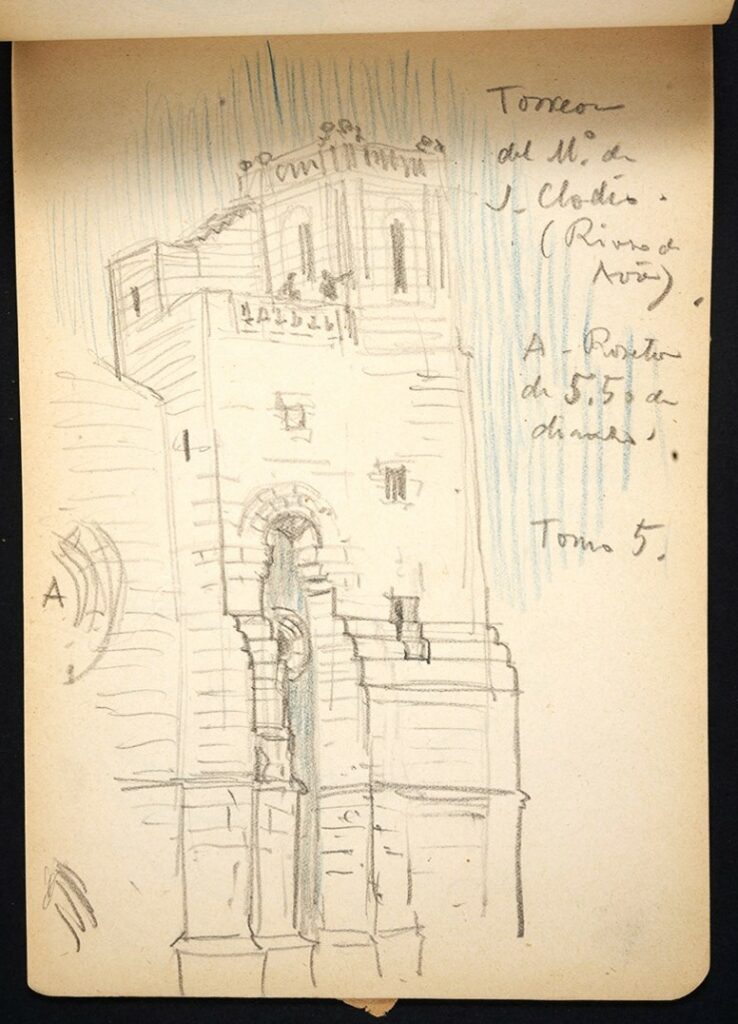 Torreon
del Mº. de
S. Clodio.
(Rivero de
Avia).
A - Roseton
de 5.50 de
diametro.
Tomo 5.
A